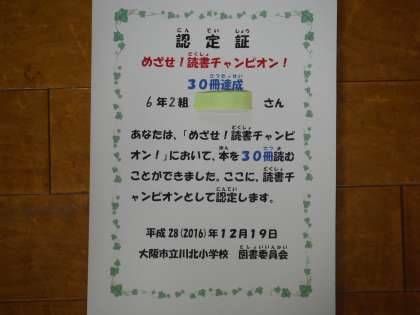 認定証
めざせ！読書チャンピオン！
３０冊達成
６年２組 さん
あなたは、「めざせ！読書チャンピ
オン！」において、本を３０冊読む
ことができました。ここに、読書チ
ャンピオンとして認定します。
平成28(2016)年１２月１９日
大阪市立川北小学校 図書委員会